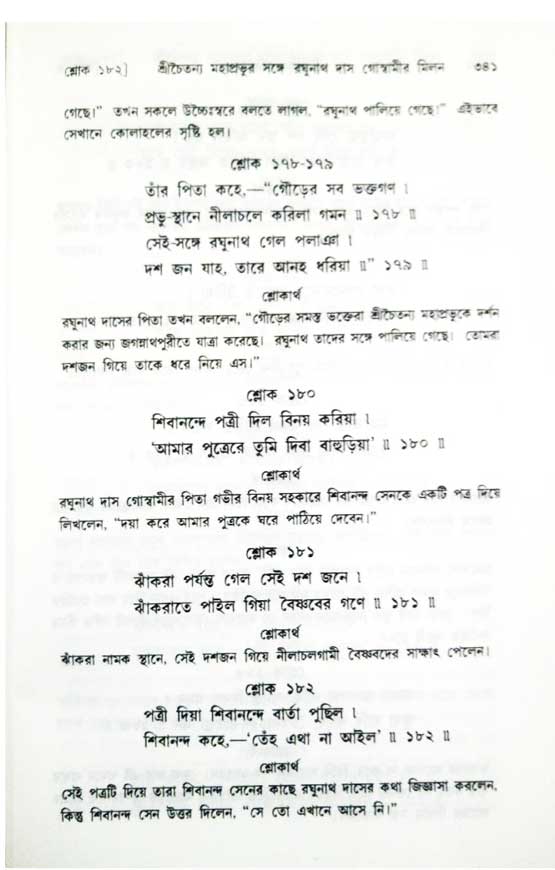 শ্লোক ১৮২] শ্রীচৈতন্য মহাপ্রভুর সঙ্গে রঘুনাথ দাস গোস্বামীর মিলন ৩৪১
গেছে!” তখন সকলে উচ্চৈঃস্বরে বলতে লাগল, “রঘুনাথ পালিয়ে গেছে!” এইভাবে
সেখানে কোলাহলের সৃষ্টি হল।
শ্লোক ১৭৮-১৭৯
তাঁর পিতা কহে,—“গৌড়ের সব ভক্তগণ ।
প্রভু-স্থানে নীলাচলে করিলা গমন ॥ ১৭৮ ॥
সেই-সঙ্গে রঘুনাথ গেল পলাঞা ।
দশ জন যাহ, তারে আনহ ধরিয়া ॥” ১৭৯ ॥
শ্লোকার্থ
রঘুনাথ দাসের পিতা তখন বললেন, “গৌড়ের সমস্ত ভক্তেরা শ্রীচৈতন্য মহাপ্রভুকে দর্শন
করার জন্য জগন্নাথপুরীতে যাত্রা করেছে। রঘুনাথ তাদের সঙ্গে পালিয়ে গেছে। তোমরা
দশজন গিয়ে তাকে ধরে নিয়ে এস।”
শ্লোক ১৮০
শিবানন্দে পত্রী দিল বিনয় করিয়া ।
‘আমার পুত্রেরে তুমি দিবা বাহুড়িয়া’ ॥ ১৮০ ॥
শ্লোকার্থ
রঘুনাথ দাস গোস্বামীর পিতা গভীর বিনয় সহকারে শিবানন্দ সেনকে একটি পত্র দিয়ে
লিখলেন, “দয়া করে আমার পুত্রকে ঘরে পাঠিয়ে দেবেন।”
শ্লোক ১৮১
ঝাঁকরা পর্যন্ত গেল সেই দশ জনে ।
ঝাঁকরাতে পাইল গিয়া বৈষ্ণবের গণে ॥ ১৮১ ॥
শ্লোকার্থ
ঝাঁকরা নামক স্থানে, সেই দশজন গিয়ে নীলাচলগামী বৈষ্ণবদের সাক্ষাৎ পেলেন।
শ্লোক ১৮২
পত্রী দিয়া শিবানন্দে বার্তা পুছিল ।
শিবানন্দ কহে,—‘তেঁহ এথা না আইল’ ॥ ১৮২ ॥
শ্লোকার্থ
সেই পত্রটি দিয়ে তারা শিবানন্দ সেনের কাছে রঘুনাথ দাসের কথা জিজ্ঞাসা করলেন,
কিন্তু শিবানন্দ সেন উত্তর দিলেন, “সে তো এখানে আসে নি।”